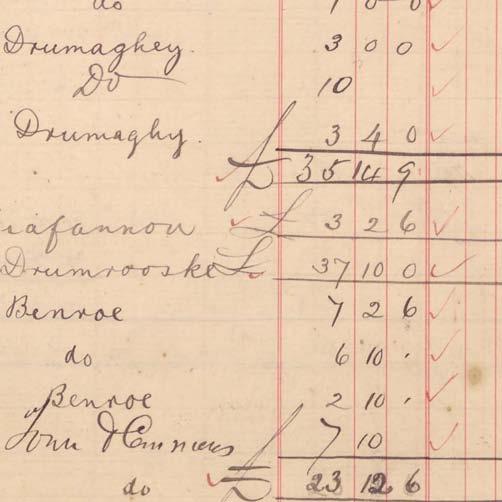 do 1 0 0
Drumaghey. 3 0 0
Do 10
Drumaghy. 3 4 0
£ 35 14 9
£ 3 2 6
Drumrooske £ 37 10 0
Benroe 7 2 6
do 6 10 .
Benroe 2 10 .
John 7 10
do £ 23 12 6